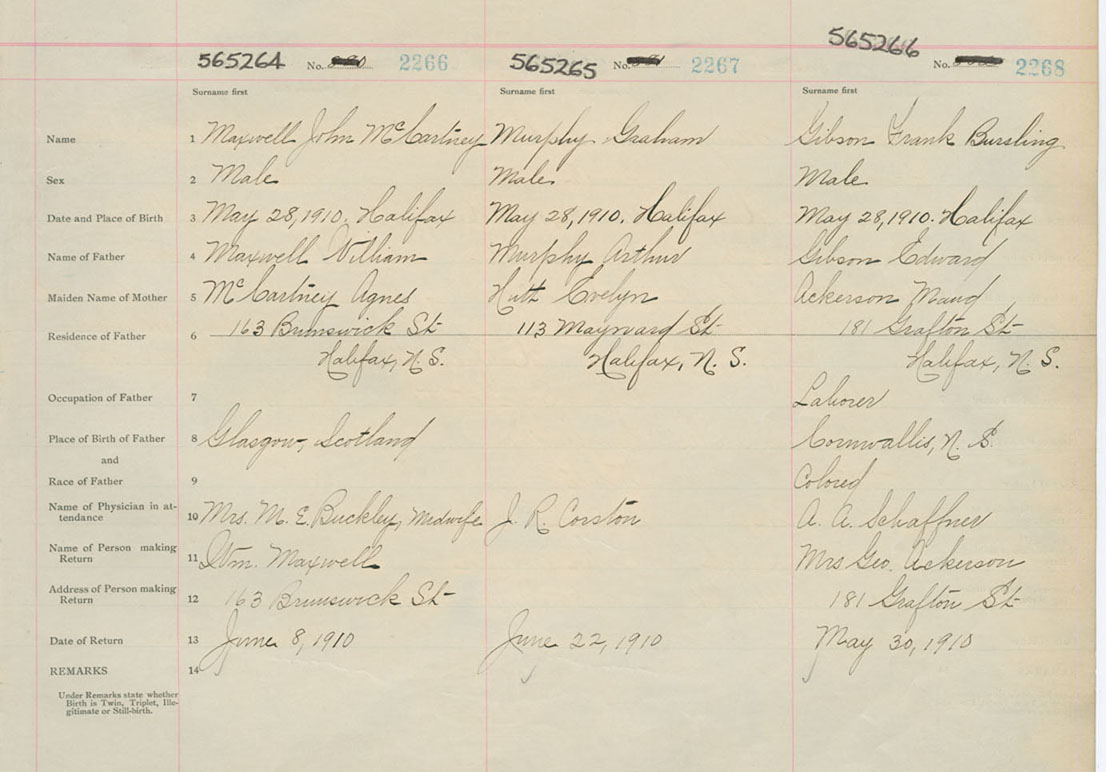 565264 No. 2266 565265 No. 2267 565266 No. 2268
Surname first Surname first Surname first
Name 1 Maxwell John McCartney Murphy Graham Gibson Frank Bursling
Sex 2 Male Male Male
Date and Place of Birth 3 May 28, 1910. Halifax May 28, 1910. Halifax May 28, 1910. Halifax
Name of Father 4 Maxwell William Murphy Arthur Gibson Edward
Maiden Name of Mother 5 McCartney Agnes Hutt Evelyn Ackerson Maud
Residence of Father 6 163 Brunswick St 113 Maynard St 181 Grafton St
Halifax, N. S. Halifax, N. S. Halifax, N. S.
Occupation of Father 7 Laborer
Place of Birth of Father 8 Glasgow, Scotland Cornwallis, N. S.
and
Race of Father 9 Colored
Name of Physician in at-
tendance 10 Mrs. M. E. Buckley, Midwife J. R. Corston A. A. Schaffner
Name of Person making
Return 11 Wm. Maxwell Mrs Geo. Ackerson
Address of Person making
Return 12 163 Brunswick St 181 Grafton St
Date of Return 13 June 8, 1910 June 22, 1910 May 30, 1910
REMARKS 14
Under Remarks state whether
Birth is Twin, Triplet, Ille-
gitimate or Still-birth.